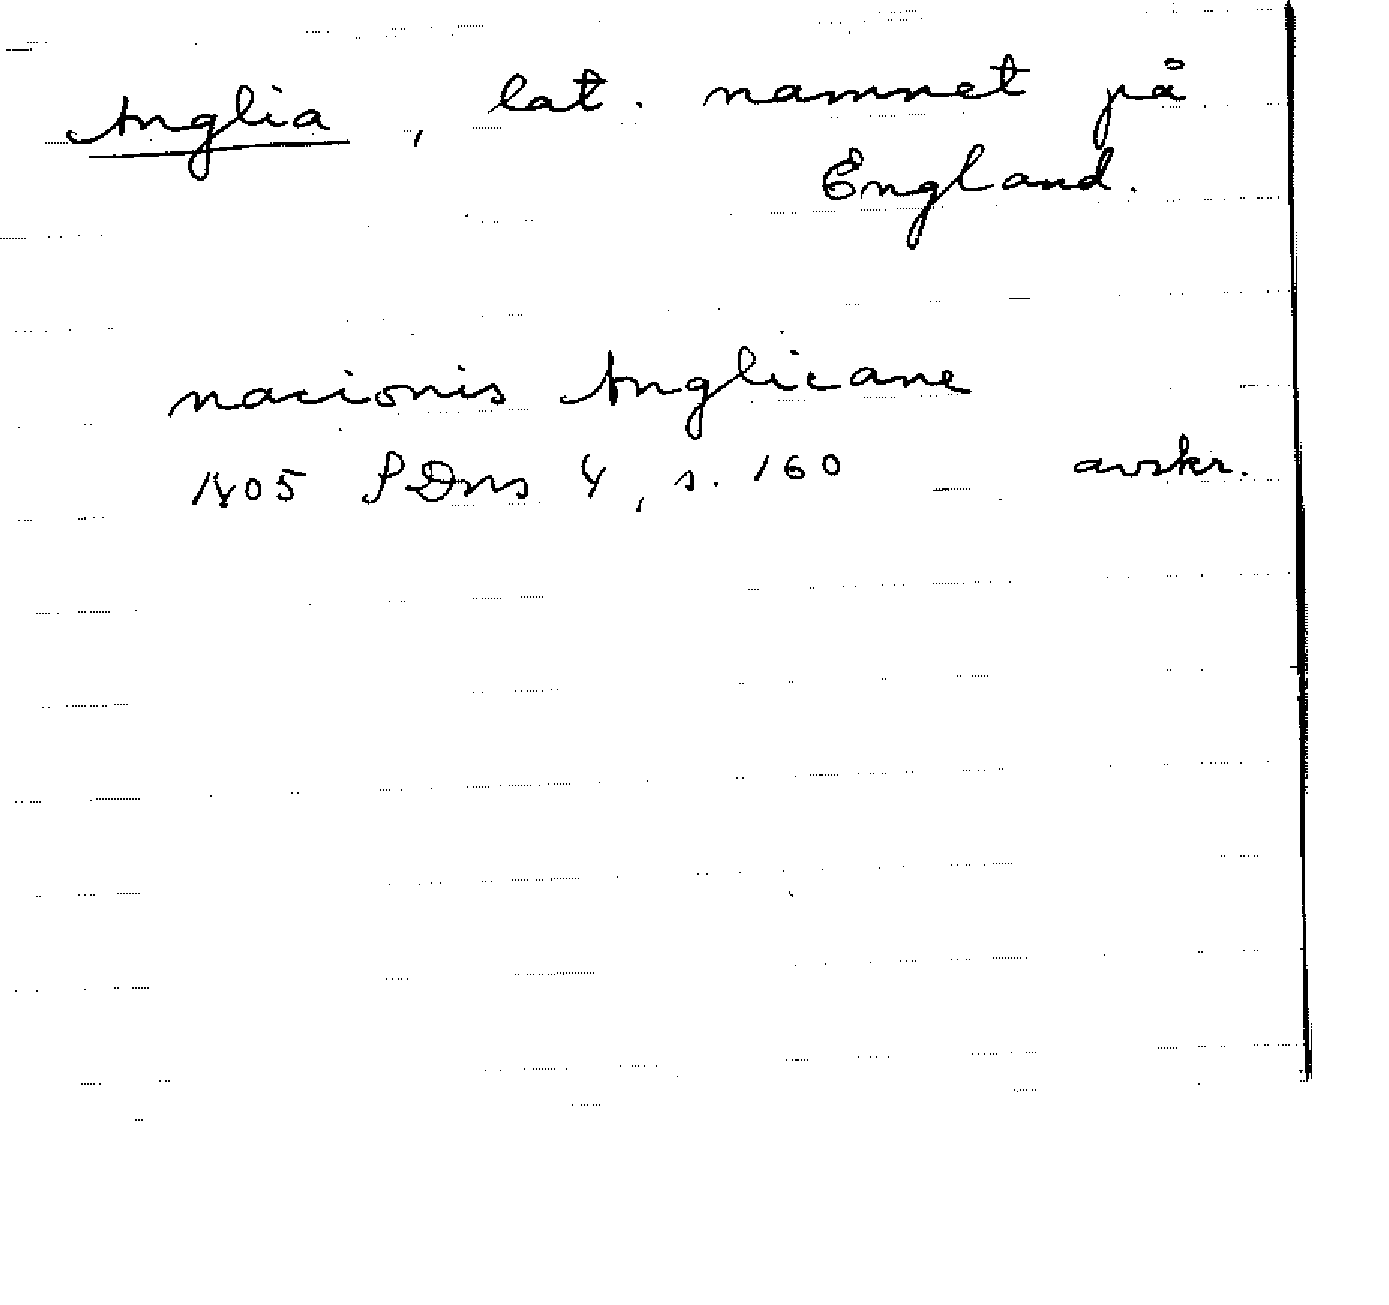 Anglia, lat. namnet på
England.
nacionis Anglicane
1405 SDns 4, s. 160 avskr.